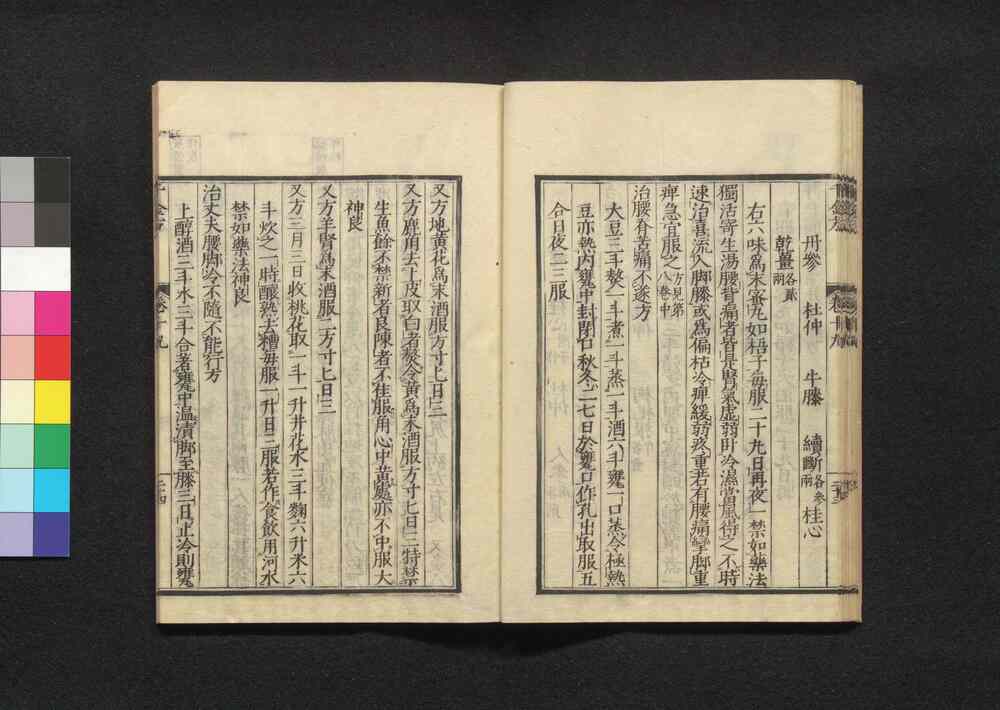 丹參 杜仲 牛膝 續斷各參兩 桂心
乾薑各貳兩
右六味爲末蜜丸如梧子每服二十丸日再夜一禁如藥法
獨活寄生湯腰背痛者皆是腎氣虛弱臥冷濕當風得之不時
速治喜流入脚膝或爲偏枯冷痺緩弱疼重若有腰痛攣脚重
痺急宜服之方見第八卷中
治腰脊苦痛不遂方
大豆三斗熬一斗煮一斗蒸一斗酒六斗甕一口蒸令極熱
豆亦熱內甕中封閉口秋冬二七日於甕口作孔出取服五
合日夜二三服
又方地黃花爲末酒服方寸匕日三
又方鹿角去上皮取白者熬令黃爲末酒服方寸匕日三特禁
生魚餘不禁新者良陳者不任服角心中黃處亦不中服大
神良
又方羊腎爲末酒服二方寸匕日三
又方三月三日收桃花取一斗一升井花水三斗麴六升米六
斗炊之一時釀熟去糟每服一升日三服若作食飲用河水
禁如藥法神良
治丈夫腰脚冷不隨不能行方
上醇酒三斗水三斗合著甕中温漬脚至膝三日止冷則甕